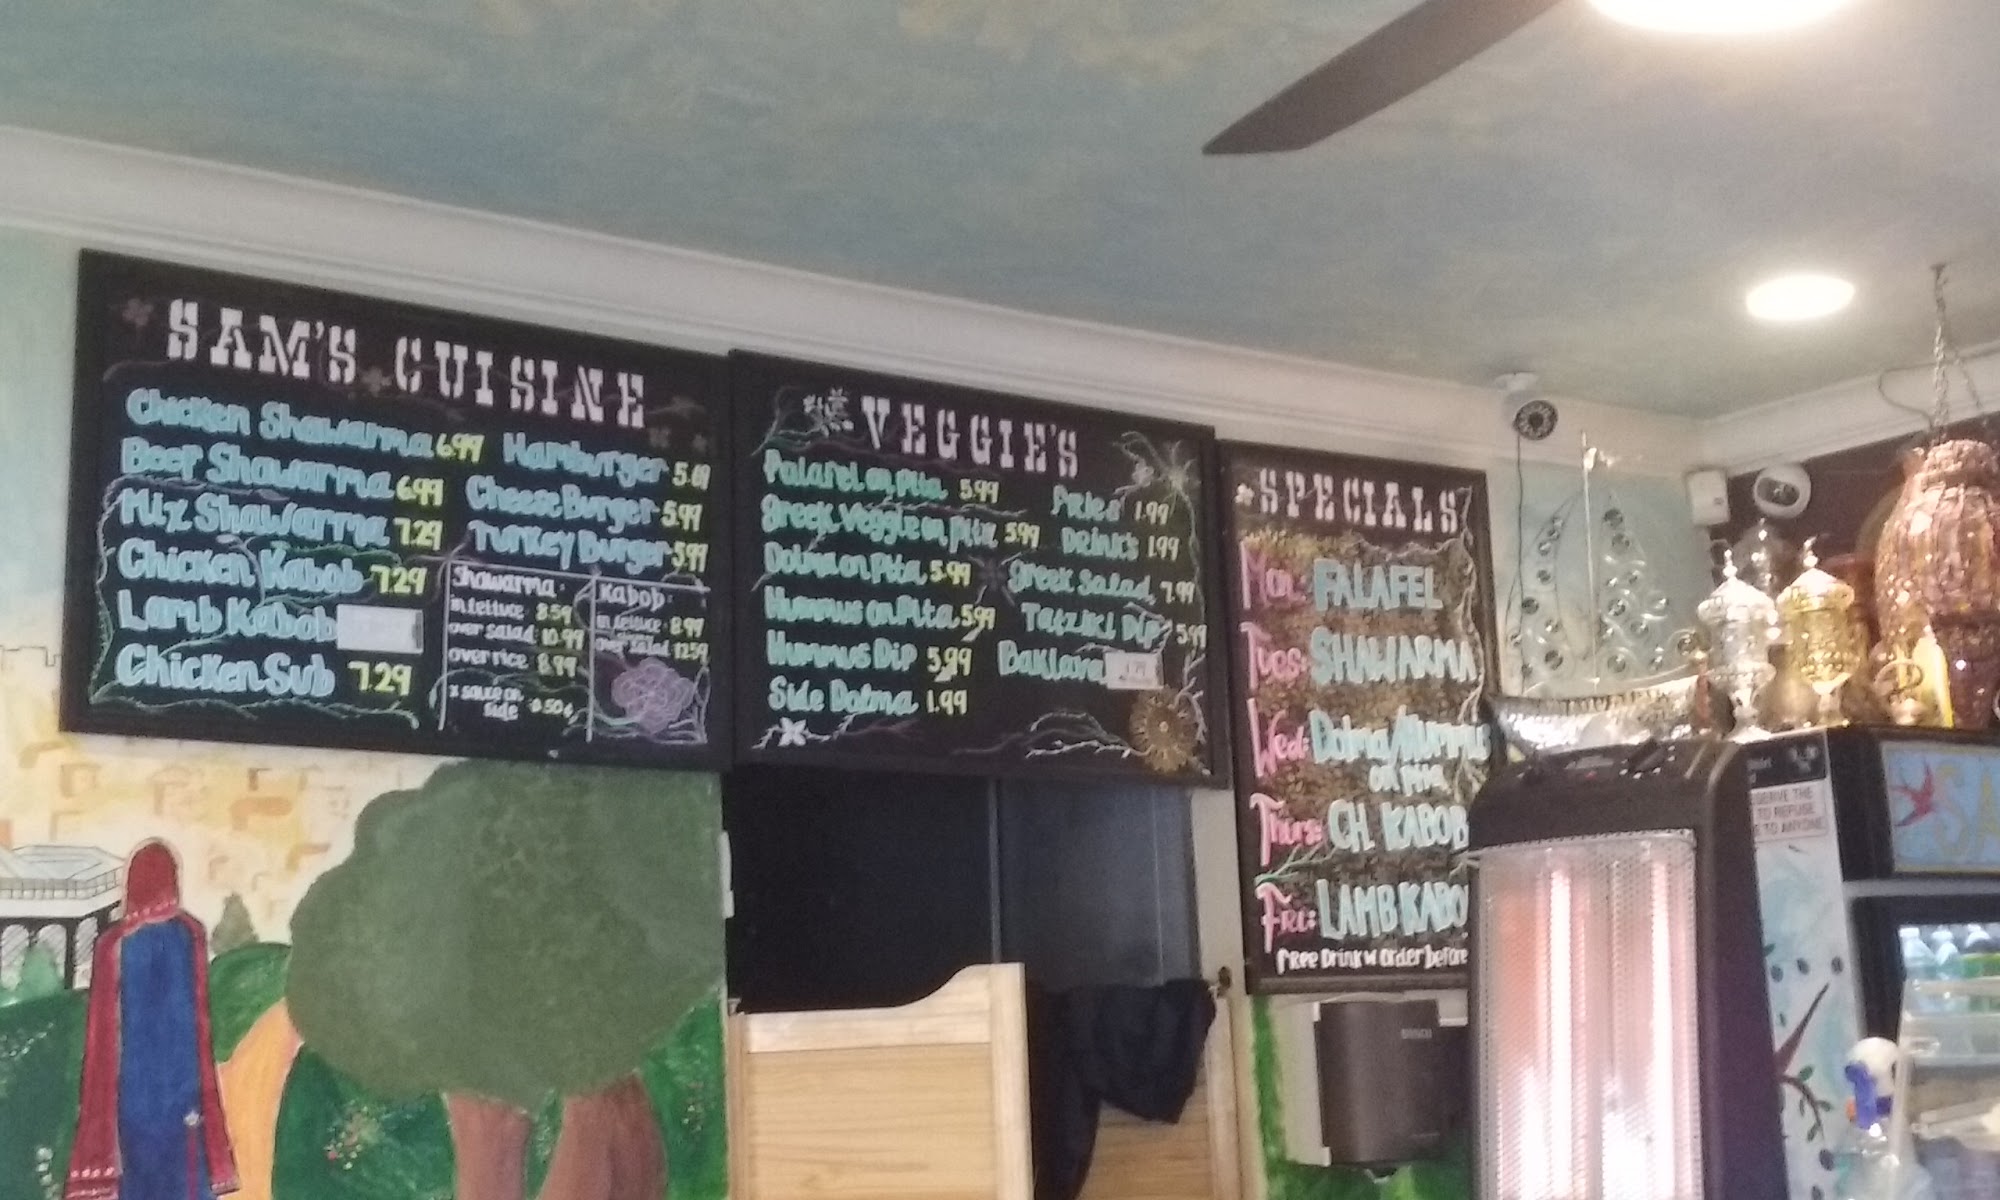 SAM'S CUISINE
Chicken Shawarma 6.99
Beef Shawarma 6.99
Mix Shawarma 7.29
Chicken Kabob 7.29
Lamb Kabob
Chicken Sub 7.29
Hamburger 5.69
Cheese Burger 5.99
Turkey Burger 5.99
Shawarma:
in lettuce 8.59
over salad 10.99
over rice 8.99
x sauce on
side .50¢
Kabob:
in lettuce 8.99
over salad 12.59
VEGGIE'S
Falafel on Pita 5.99
Greek Veggie on Pita 5.99
Dolma on Pita 5.99
Hummus on Pita 5.99
Hummus Dip 5.99
Side Dolma 1.99
Fries 1.99
Drinks 1.99
Greek Salad 7.99
Tatziki Dip 5.99
Baklava
SPECIALS
Mon: FALAFEL
Tues: SHAWARMA
Wed: Dolma/Hummus
on Pita
Thurs: CH. KABOB
Fri: LAMB KABO
Free Drink w order before
SERVE THE
TO REFUSE
TO ANYONE
SA